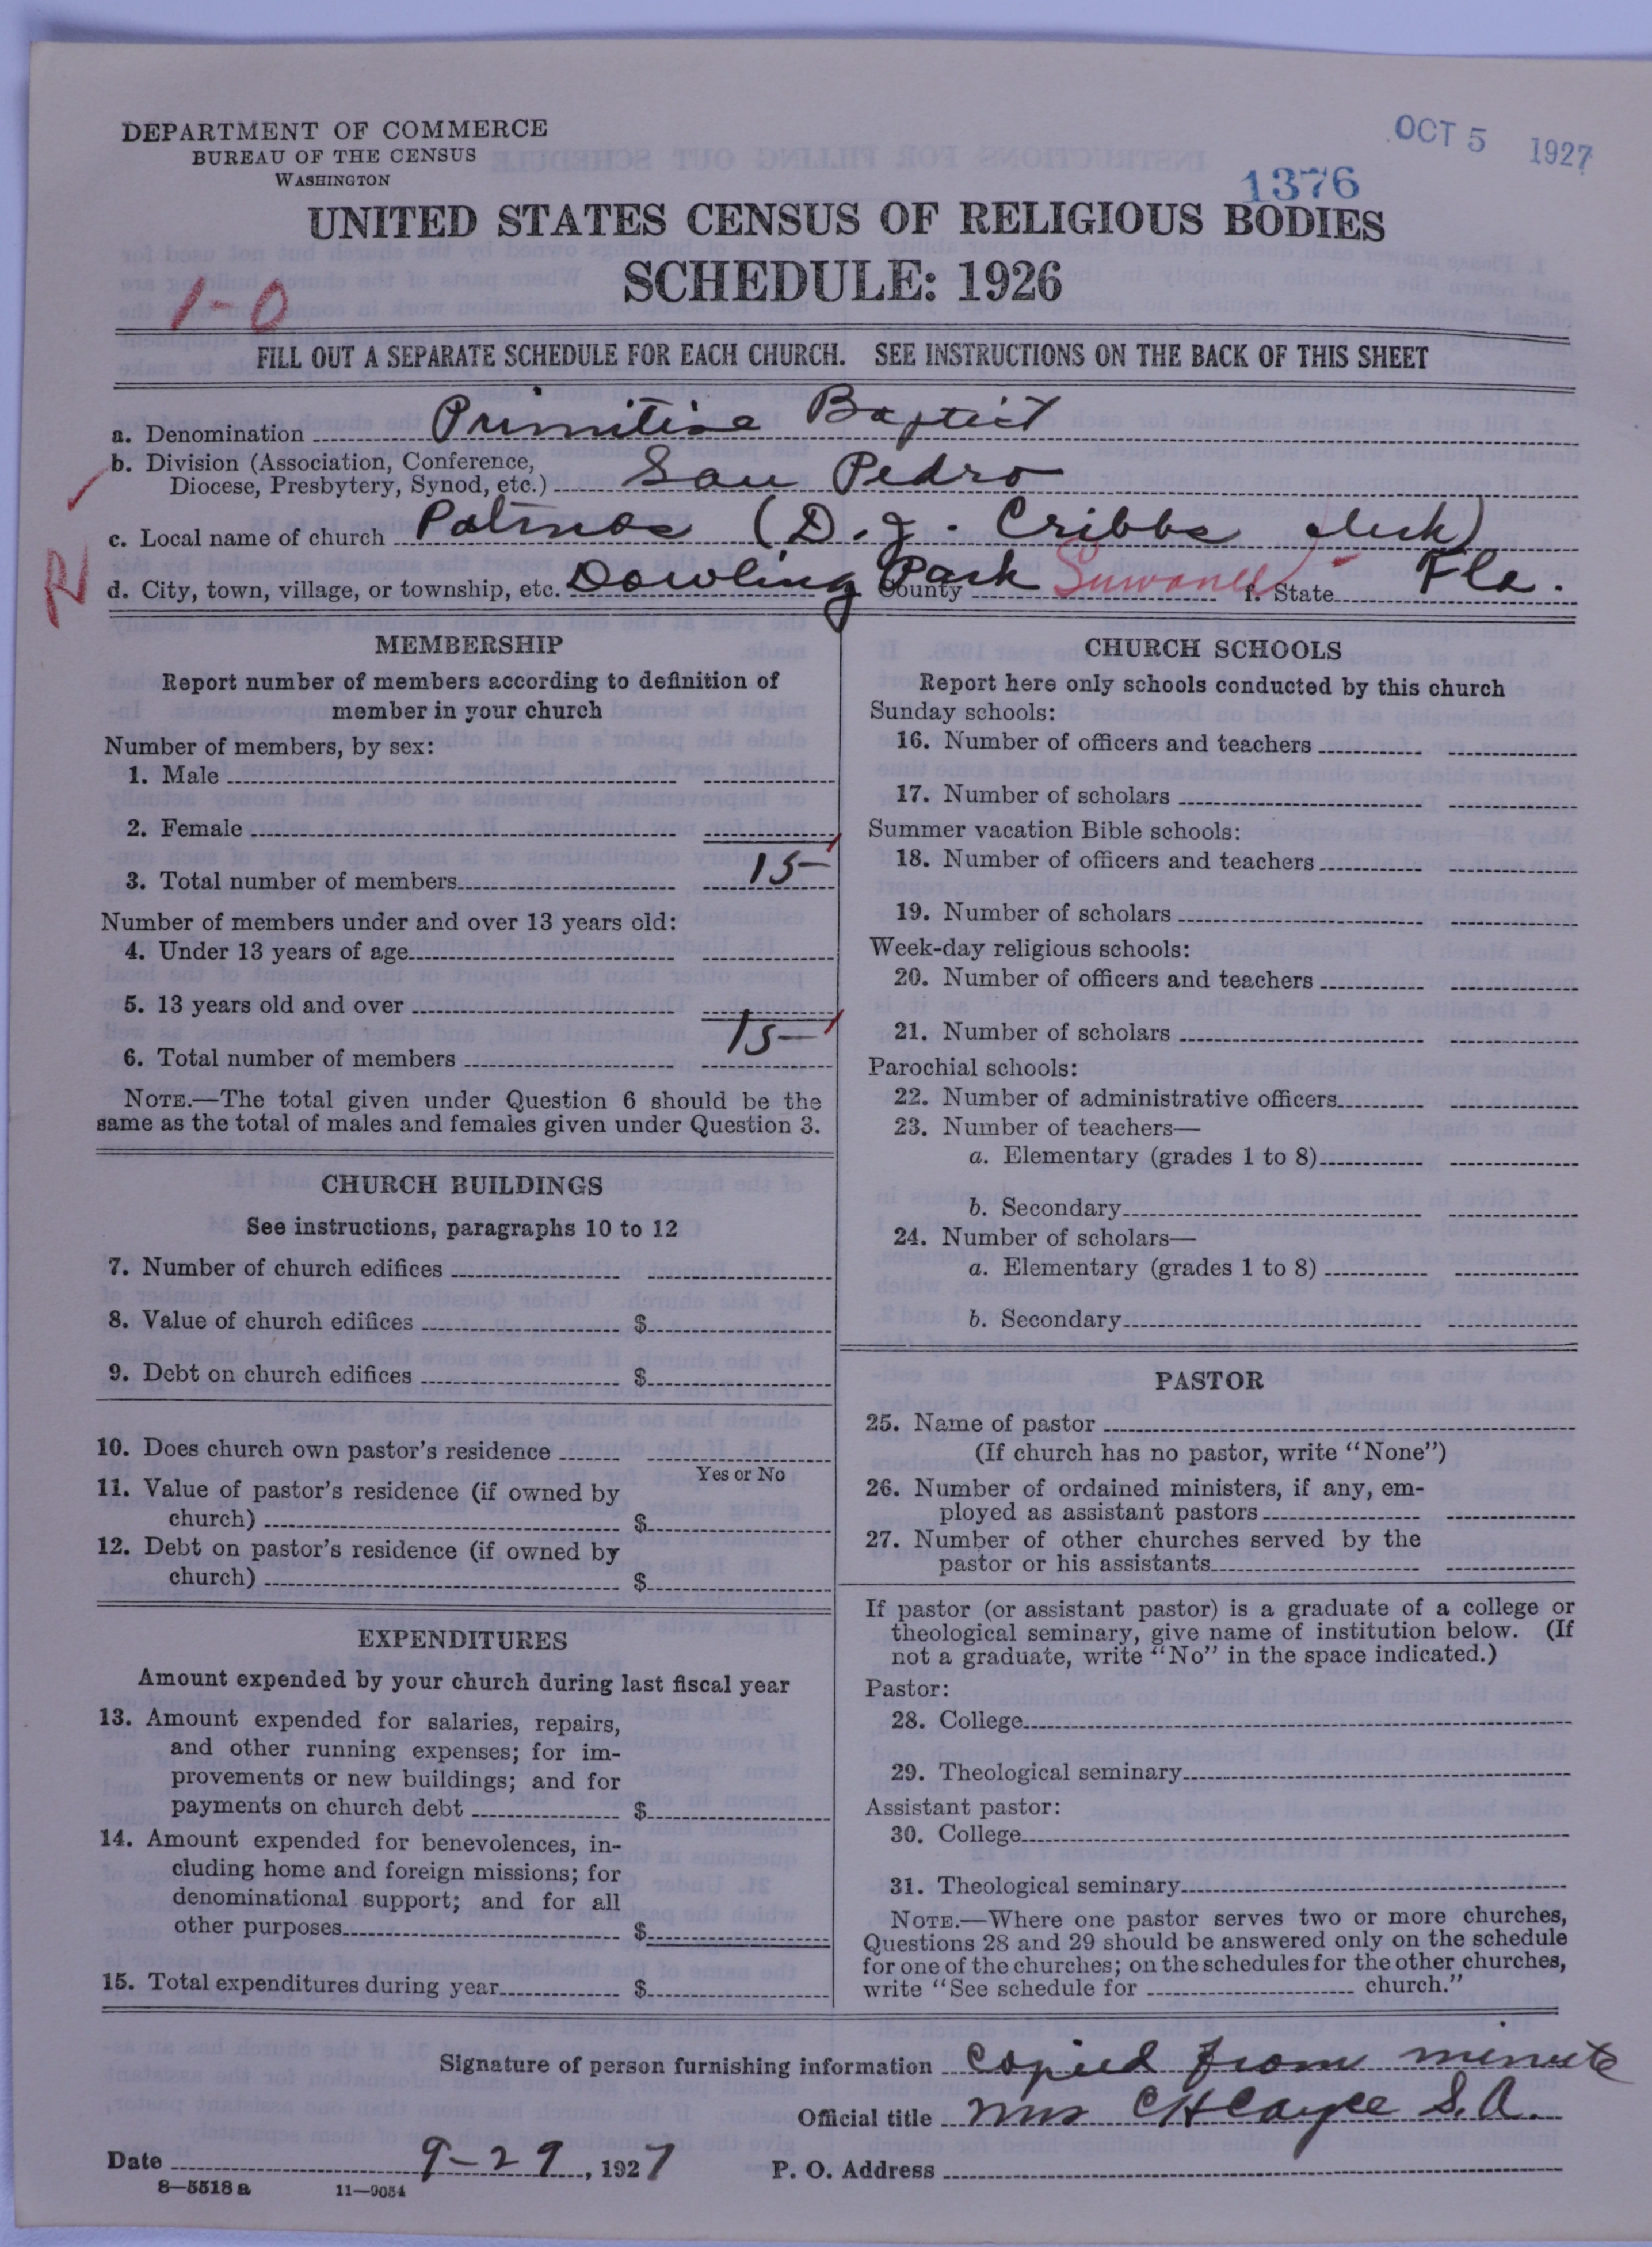 DEPARTMENT OF COMMERCE
BUREAU OF THE CENSUS
WASHINGTON
OCT 5 1927
1376
UNITED STATES CENSUS OF RELIGIOUS BODIES
SCHEDULE: 1926
1-0
FILL OUT A SEPARATE SCHEDULE FOR EACH CHURCH. SEE INSTRUCTIONS ON THE BACK OF THIS SHEET
a. Denomination Primitive Baptist
b. Division (Association, Conference,
Diocese, Presbytery, Synod, etc.) San Pedro
c. Local name of church Patmos (D. J. Cribbs clerk)
R
d. City, town, village, or township, etc. Dowling Park County Suwanee f. State Fla.
MEMBERSHIP
Report number of members according to definition of
member in your church
Number of members, by sex:
1. Male
2. Female
3. Total number of members 15
Number of members under and over 13 years old:
4. Under 13 years of age
5. 13 years old and over
6. Total number of members 15
NOTE.—The total given under Question 6 should be the
same as the total of males and females given under Question 3.
CHURCH BUILDINGS
See instructions, paragraphs 10 to 12
7. Number of church edifices
8. Value of church edifices $
9. Debt on church edifices $
10. Does church own pastor's residence
Yes or No
11. Value of pastor's residence (if owned by
church) $
12. Debt on pastor's residence (if owned by
church) $
EXPENDITURES
Amount expended by your church during last fiscal year
13. Amount expended for salaries, repairs,
and other running expenses; for im-
provements or new buildings; and for
payments on church debt $
14. Amount expended for benevolences, in-
cluding home and foreign missions; for
denominational support; and for all
other purposes $
15. Total expenditures during year $
CHURCH SCHOOLS
Report here only schools conducted by this church
Sunday schools:
16. Number of officers and teachers
17. Number of scholars
Summer vacation Bible schools:
18. Number of officers and teachers
19. Number of scholars
Week-day religious schools:
20. Number of officers and teachers
21. Number of scholars
Parochial schools:
22. Number of administrative officers
23. Number of teachers—
a. Elementary (grades 1 to 8)
b. Secondary
24. Number of scholars—
a. Elementary (grades 1 to 8)
b. Secondary
PASTOR
25. Name of pastor
(If church has no pastor, write "None")
26. Number of ordained ministers, if any, em-
ployed as assistant pastors
27. Number of other churches served by the
pastor or his assistants
If pastor (or assistant pastor) is a graduate of a college or
theological seminary, give name of institution below. (If
not a graduate, write "No" in the space indicated.)
Pastor:
28. College
29. Theological seminary
Assistant pastor:
30. College
31. Theological seminary
NOTE.—Where one pastor serves two or more churches,
Questions 28 and 29 should be answered only on the schedule
for one of the churches; on the schedules for the other churches,
write "See schedule for church."
Signature of person furnishing information Copied from minute
Official title Mrs C H Cayce S. A.
Date 9-29, 1927 P. O. Address
8—5518a 11—9054